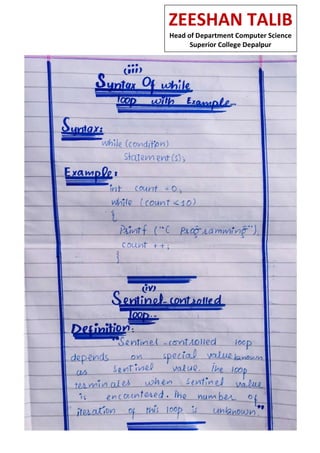 ZEESHAN TALIB
Head of Department Computer Science
Superior College Depalpur
(iii)
Syntax Of while
loop with Example..
Syntax:
while (condition)
Statement(s);
Example:
int count = 0;
while (count < 10)
{
Printf ("C Programming");
count ++;
}
(iv)
Sentinel-controlled
loop..
Definition:
"Sentinel-controlled loop
depends on special value known
as sentinel value. The loop
terminates when sentinel value
is encountered. The number of
iteration of this loop is unknown."